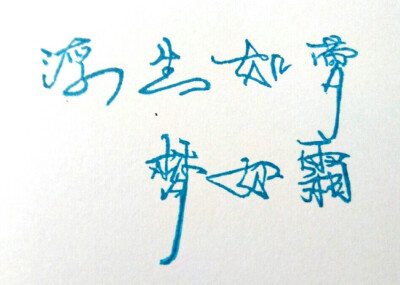 浮生如梦
梦如霜